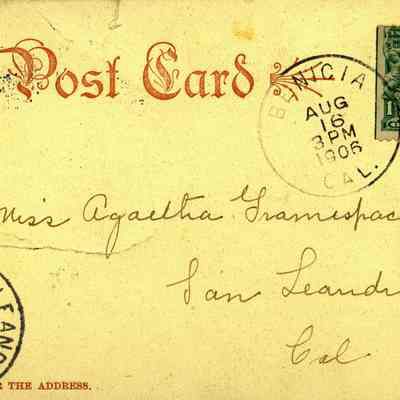 Post Card
BENICIA
AUG
16
3 PM
1906
CAL.
1
Miss Agaetha Gramespac
San Leandr
Cal
LEAND
R THE ADDRESS.